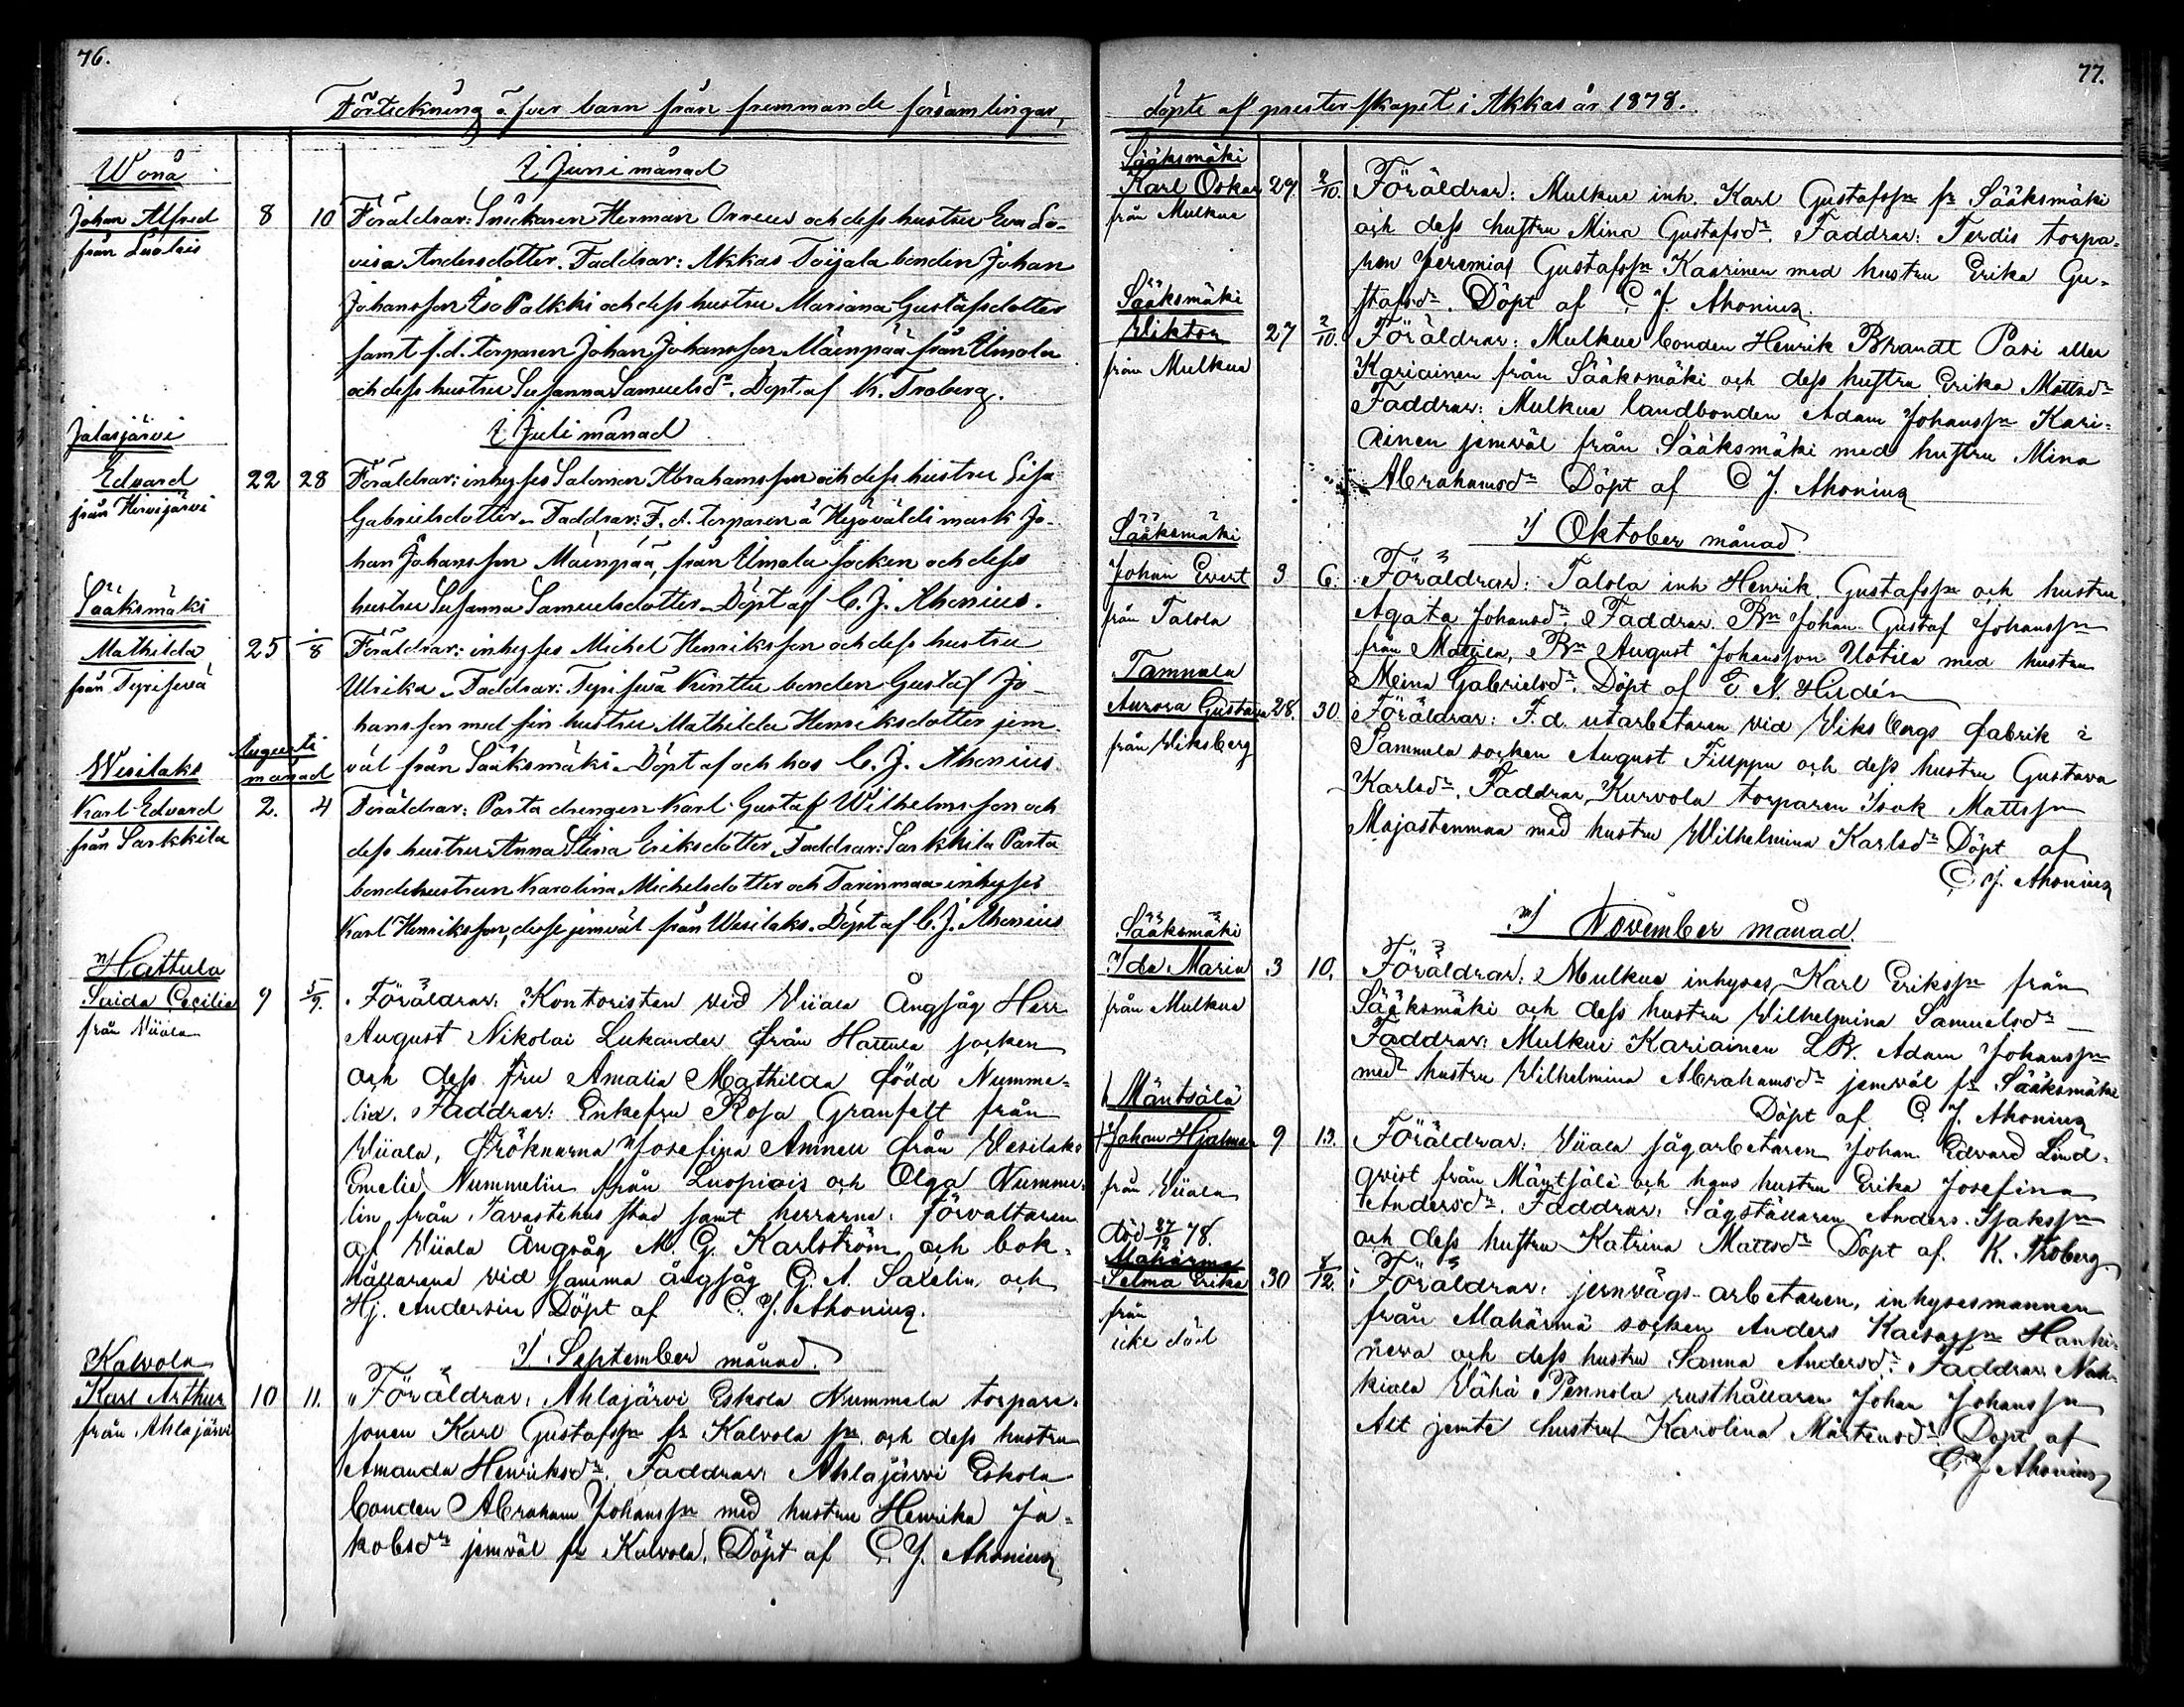 76.
Förteckning öfver barn från fremmande församlingar,
Wånå
I Juni månad
Johan Alfred 8 10 Föräldrar: Snickaren Herman Orreus och dess hustru Eva Lo-
från
visa Andersdotter. Faddrar: Akkas Toijala bonden Johan
Johansson Iso Palkki och dess hustru Mariana Gustafsdotter
samt f.d. torparen Johan Johansson Mäenpää från Urnola
och dess hustru Susanna Samuelsdr. Döpt af K. Troberg.
Jalasjärvi
I Juli månad
Edvard 22 28 Föräldrar: inhyses Salomon Abrahamsson och dess hustru Lisa
från Hirvijärvi
Gabrielsdotter. Faddrar: F.d. torparen å mark Jo-
han Johansson Mäenpää, från Urnola socken och dess
hustru Susanna Samuelsdotter. Döpt af C. J. Ahonius.
Sääksmäki
Mathilda 25 1/8 Föräldrar: inhyses Michel Henriksson och dess hustru
från
Ulrika. Faddrar: bonden Gustaf Jo-
hansson med sin hustru Mathilda Henriksdotter jem-
väl från Sääksmäki. Döpt af och hos C. J. Ahonius.
Augusti månad
Wesilaks
Karl Edvard 2. 4 Föräldrar: Parta drengen Karl Gustaf Wilhelmsson och
från Sarkkila
dess hustru Anna Stina Eriksdotter. Faddrar: Sarkkila Parta
bondehustrun Karolina Michelsdotter och Tarinmaa inhyses
Karl Henriksson, desse jemväl från Wesilaks. Döpt af C. J. Ahonius
Hattula
Saida Cecilia 9 5/9. Föräldrar: Kontoristen vid Viiala Ångsåg Herr
från Viiala
August Nikolai Lukander från Hattula socken
och dess fru Amalia Mathilda född Numme-
lin. Faddrar: Enkefru Rosa Granfelt från
Viiala, fröknarna Josefina Amnell från Vesilaks
Emelie Nummelin från Luopiois och Olga Numme-
lin från Tavastehus stad samt herrarna: förvaltaren
af Viiala ångsåg M. G. Karlström och bok-
hållarena vid samma ångsåg G. A. Saxelin och
Hj. Andersin Döpt af C. J. Ahonius.
I September månad.
Kalvola
Karl Arthur 10 11. Föräldrar: Ahlajärvi Eskola Nummela torpare-
från Ahlajärvi
sonen Karl Gustafssn fr Kalvola sn och dess hustru
Amanda Henriksdr. Faddrar: Ahlajärvi Eskola
bonden Abraham Johanssn med hustru Henrika Ja-
kobsdr jemväl fr Kalvola. Döpt af C. J. Ahonius
77.
döpte af presterskapet i Akkas år 1878.
Sääksmäki
Karl Oskar 29. 2/10. Föräldrar: Mulkue inh. Karl Gustafssn fr Sääksmäki
från Mulkue
och dess hustru Mina Gustafsdr. Faddrar: Terdis torpa-
ren Jeremias Gustafssn Kaarinen med hustru Erika Gu-
stafsdr. Döpt af C. J. Ahonius.
Sääksmäki
Viktor 27 2/10. Föräldrar: Mulkue bonden Henrik Brandt Pasi eller
från Mulkua
Kariainen från Sääksmäki och dess hustru Erika Mattsdr
Faddrar: Mulkue landbonden Adam Johanssn Kari-
ainen jemväl från Sääksmäki med hustru Mina
Abrahamsdr Döpt af C J. Ahonius
I Oktober månad
Sääksmäki
Johan Evert 3 6. Föräldrar: Talola inh Henrik Gustafssn och hustru
från Talola
Agata Johansdr. Faddrar. Bn Johan Gustaf Johanssn
från Mattila, Bn August Johansson Uotila med hustru
Meina Gabrielsdr. Döpt af E N. Hildén
Tammela
Aurora Gustava 28. 30 Föräldrar: F.d. utarbetaren vid Viksbergs fabrik i
från Viksberg
Tammela socken August Filuppu och dess hustru Gustava
Karlsdr. Faddrar, Kurvola torparen Isak Mattssn
Majastenmaa med hustru Wilhelmina Karlsdr Döpt af
C J. Ahonius
I November månad.
Sääksmäki
Ida Maria 3 10. Föräldrar: Mulkua inhyses, Karl Erikssn från
från Mulkua
Sääksmäki och dess hustru Wilhelmina Samuelsdr
Faddrar: Mulkue Kariainen LB. Adam Johanssn
med hustru Wilhelmina Abrahamsdr jemväl fr Sääksmäki
Döpt af C. J. Ahonius
Mäntsälä
†Johan Hjalmar 9 13. Föräldrar: Viiala sågarbetaren Johan Edvard Lind-
från Viiala
qvist från Mäntsälä och hans hustru Erika Josefina
död 27/12 78.
Andersdr. Faddrar: Sågställaren Anders Isakssn
och dess hustru Katrina Mattsdr Döpt af. K. Troberg
Mahärmä
Selma Erika 30 8/12. Föräldrar: jernvägs-arbetaren, inhysesmannen
från
icke död
från Alahärmä socken Anders Hanki-
neva och dess hustru Sanna Andersdr. Faddrar Nah-
kiala Vähä Pennola rusthållaren Johan Johanssn
Alt jemte hustru Karolina Mårtensdr. Döpt af
C J Ahonius